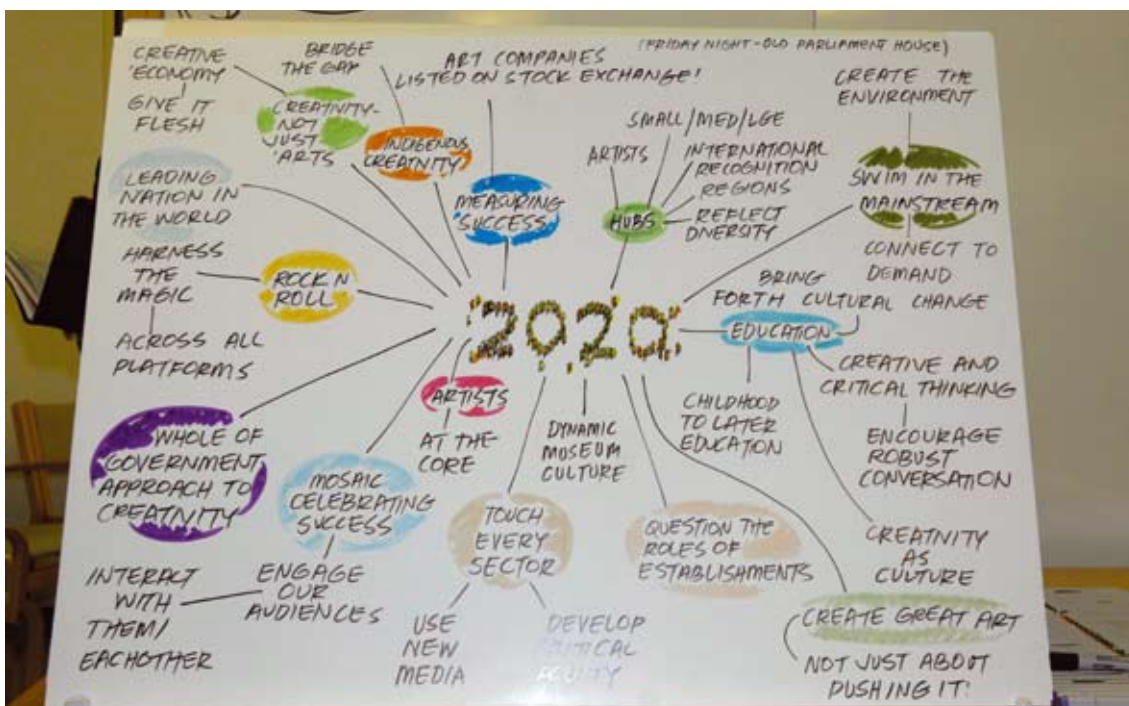 (FRIDAY NIGHT-OLD PARLIAMENT HOUSE)
CREATIVE
'ECONOMY
GIVE IT
FLESH
CREATIVITY-
NOT
JUST
'ARTS
BRIDGE
THE GAP
INDIGENOUS
CREATIVITY
ART COMPANIES
LISTED ON STOCK EXCHANGE!
MEASURING
SUCCESS
SMALL/MED/LGE
ARTISTS
INTERNATIONAL
RECOGNITION
REGIONS
HUBS
REFLECT
DIVERSITY
CREATE THE
ENVIRONMENT
SWIM IN THE
MAINSTREAM
CONNECT TO
DEMAND
LEADING
NATION IN
THE WORLD
HARNESS
THE
MAGIC
ROCK N
ROLL
ACROSS ALL
PLATFORMS
2020
BRING
FORTH CULTURAL CHANGE
EDUCATION
CREATIVE AND
CRITICAL THINKING
ENCOURAGE
ROBUST
CONVERSATION
CHILDHOOD
TO LATER
EDUCATION
CREATIVITY
AS
CULTURE
WHOLE OF
GOVERNMENT
APPROACH TO
CREATIVITY
MOSAIC
CELEBRATING
SUCCESS
ENGAGE
OUR
AUDIENCES
INTERACT
WITH
THEM/
EACHOTHER
ARTISTS
AT THE
CORE
TOUCH
EVERY
SECTOR
USE
NEW
MEDIA
DEVELOP
DYNAMIC
MUSEUM
CULTURE
QUESTION THE
ROLES OF
ESTABLISHMENTS
CREATE GREAT ART
NOT JUST ABOUT
PUSHING IT!